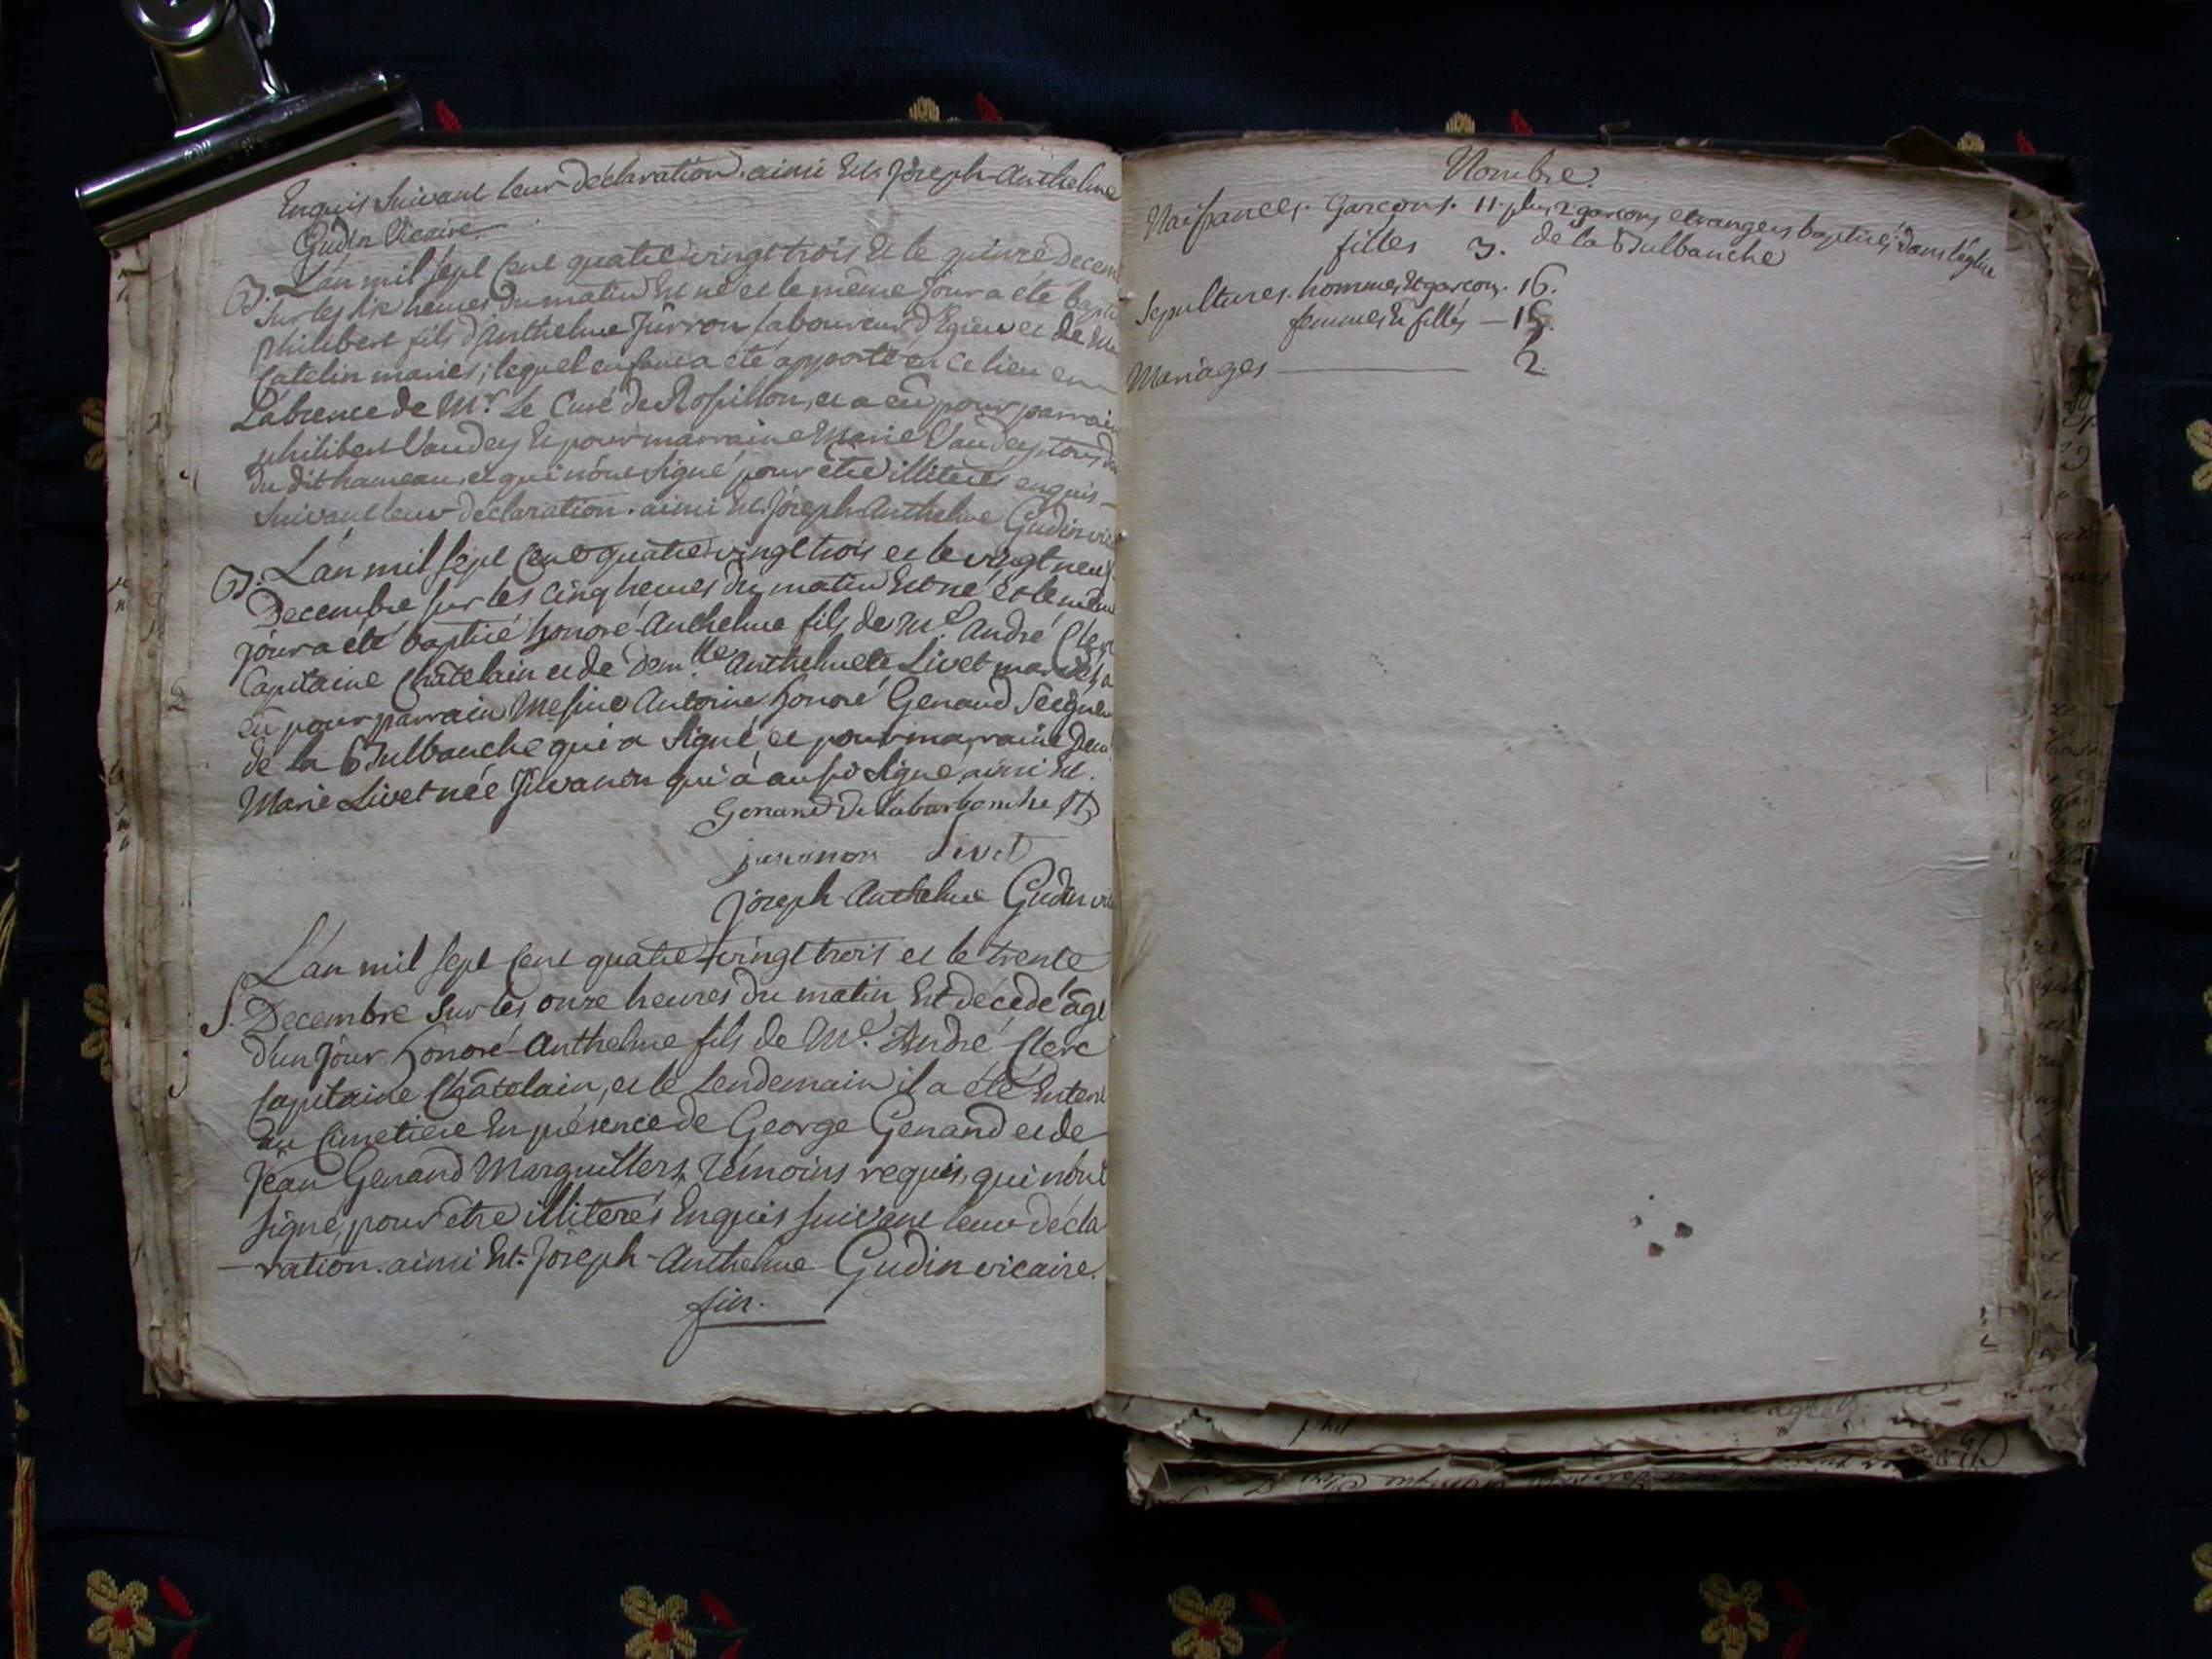 Enquis suivant leur déclaration. ainsi Est. Joseph-Anthelme
Gudin Vicaire.
B. L'an mil sept cent quatre vingt trois et le quinze Decem
sur les six heures du matin Est né et le même jour a été bapti
philibert fils d'Anthelme Jurron laboureur d'Egieu et de
Catelin mariés; lequel enfant a été apporté en ce lieu en
L'absence de Mr. Le Curé de Rossillon, et a eû pour parrain
philibert Vaudey et pour marraine Marie Vaudey tous
du dit hameau, et qui n'ont signé pour être illiterés enquis
suivant leur déclaration. ainsi Est. Joseph-Anthelme Gudin vic
B. L'an mil sept cent quatre vingt trois et le vingt neuf
Decembre sur les cinq heures du matin Est né et le même
jour a été baptisé honoré-Anthelme fils de Me. André Clerc
Capitaine Châtelain et de Demlle. Anthelmete Livet mariés, a
eû pour parrain Messire Antoine honoré Genand Seigneu
de la Bulbanche qui a signé, et pour marraine Dem
Marie Livet née Juvanon qui a aussi signé. ainsi Est.
Genand De
juvanon Livet
Joseph-Anthelme Gudin vic
L'an mil sept cent quatre-vingt trois et le trente
S. Decembre sur les onze heures du matin Est décédé âgé
d'un jour honoré-Anthelme fils de Me. André Clerc
Capitaine Châtelain, et le Lendemain il a été Enterré
au Cimetiere En présence de George Genand et de
Jean Genand Marguilliers, Témoins requis, qui n'ont
signé, pour etre illiterés Enquis suivant leur décla
-ration. ainsi Est. Joseph-Anthelme Gudin vicaire.
fin.
Nombre.
Naissances. Garcons. 11. plus 2 garcons etrangers baptisés dans l'eglise
filles 3. de la Bulbanche
Sepultures. hommes et garcons. 16.
femmes et filles — 15.
Mariages — 2.